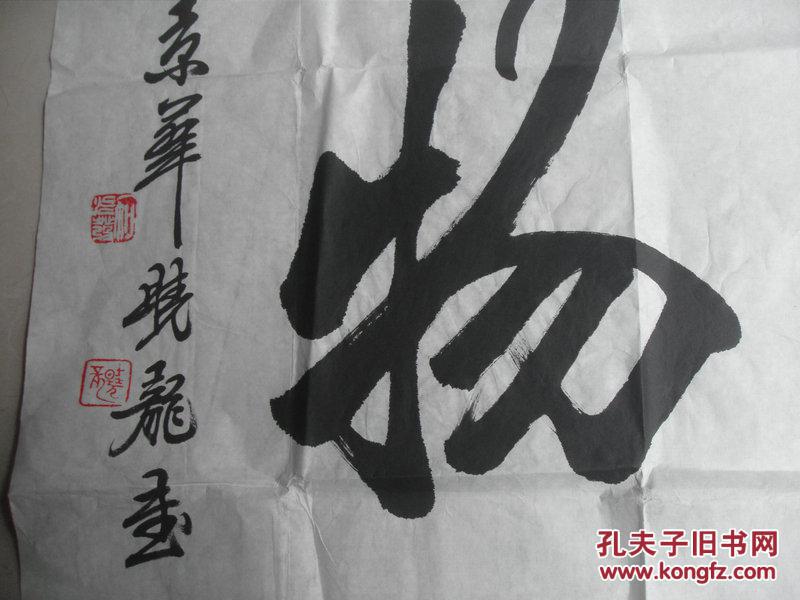 物
京華曉龍書
孔夫子旧书网
www.kongfz.com